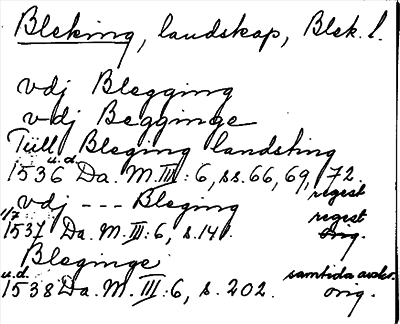 Bleking, landskap, Blek. l.
vdj Blegging
vdj Begginge
Tüll Bleging landsting
1536 u.d. Da. M. III: 6, ss. 66, 69, 72.
regest
vdj --- Bleging
regest
1/7 1537 Da. M. III: 6, s. 141. orig.
Bleginge
samtida avskr.
u.d. 1538 Da. M. III: 6, s. 202. orig.